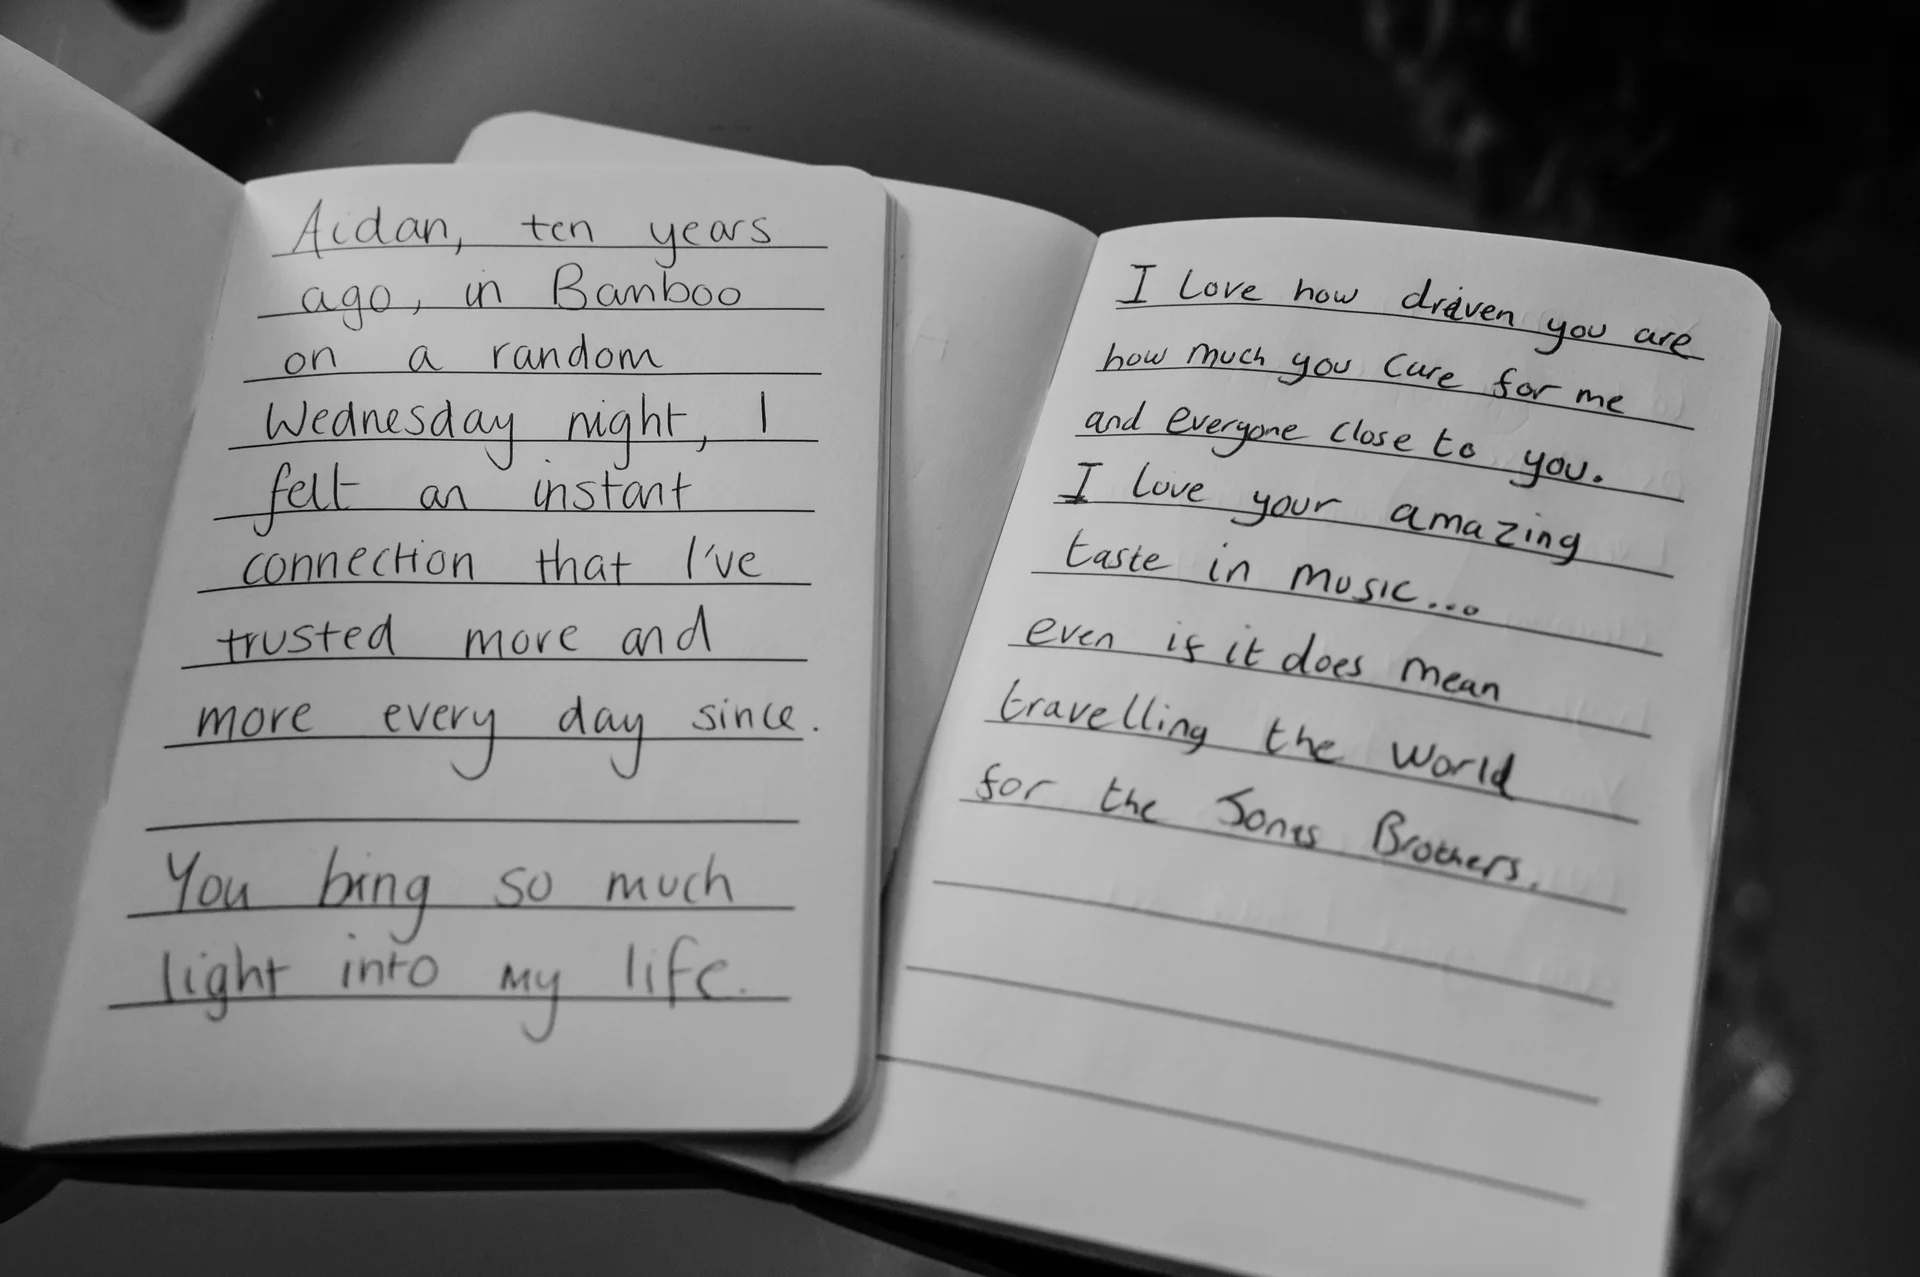 Aidan, ten years
ago, in Bamboo
on a random
Wednesday night, I
felt an instant
connection that I've
trusted more and
more every day since.
You bring so much
light into my life.
I Love how driven you are
how much you care for me
and everyone close to you.
I love your amazing
taste in music...
even if it does mean
travelling the world
for the Jonas Brothers.